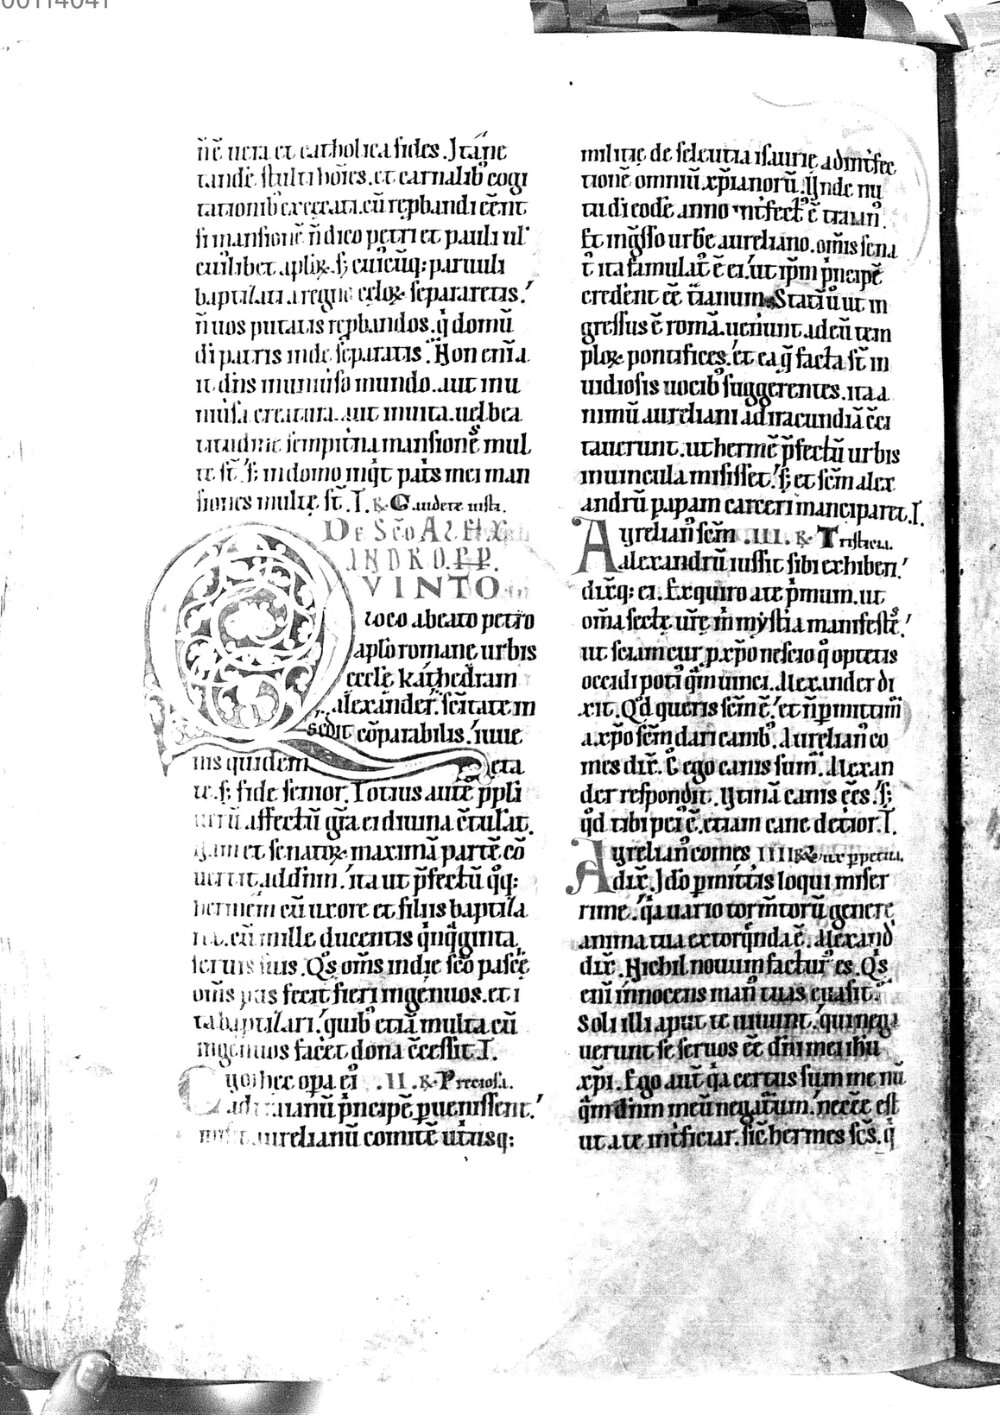 00114041
n̄ē uera et catholica fides. Itane
tandē stulti hoīes. et carnalib; cogi
tationib; execrati. cū rep̱bandi c̄ent
si mansionē n̄ dico petri et pauli ul'
cuilibet aplīꝝ. s; cuicūq: paruuli
baptizati a regno celoꝝ separaretis.
n̄ uos putatis rep̱bandos. q̇ domū
dī patris inde separatis. Non enī a
it dn̄s in uniuso mundo. aut in u
niūsa creatura. aut in uita. uel bea
titudine sempit̄na mansionē mul
te st̄. s; in domo inq̇t pat̄s mei man
siones multę st̄. T. ꝶ. Gaudete iusti.
DE SC̄O ALEX
ANDRO. PP.
QVINTO
loco a beato petro
apl̄o romane urbis
eccl̄e kathedram
alexander. sc̄itate in
sedit cōparabilis. iuue
nis quidem eta
te. s; fide senior. Totius autē ppl̄i
uerū affectū gr̄a ei diuina c̄tulat.
Nam et senatoꝝ maximā partē cō
uertit ad dn̄m. ita ut p̄fectū q̊q:
hermem cū uxore et filiis baptiza
ret. cū mille ducentis q̇nq̇ginta
seruis suis. Q̊s om̄s in die sc̄o pascē
om̄s prius fecit fieri ingenuos. et i
ta baptizari. quib; etiā multa cū
ingenuos facēt dona c̄cessit. T.
Cū oī hec opa eī .II. ꝶ. Preciosa.
ad traianū p̄ncipē puenissent.
misit. aurelianū comitē ut̄usq:
militię de seleutia isaurie ad int̄fec
tionē omniū xp̄ianorū. Unde nu
tu dī eodē anno int̄fect; ē traian;.
Et ingr̄sso urbē aureliano. om̄is sena
t; ita famulat; ē ei. ut ip̄m p̄ncipē
credent ēē t̄ianum. Statī u ut in
gressus ē romā. ueniunt ad eū tem
ploꝝ pontifices. et ea q̄ facta st̄ in
uidiosis uocib; suggerentes. ita a
nimū aureliani ad iracundiā c̄ci
tauerunt. ut hermē p̄fectū urbis
in uincula misisset. s; et sc̄m alex
andrū papam carceri manciparet. T.
Aurelian; sc̄m .III. ꝶ. Tristicia.
alexandrū iussit sibi exhiberi.
dix̄q: ei. Exquiro a te p̄mum. ut
om̄a secte ur̄ę m̄ mysṫia manifestes.
ut sciam cur. p xp̄o nescio q̊ optetis
occidi poti; q̄m uinci. Alexander di
xit. Qd̄ queris sc̄m ē. et n̄ pmittim;
a xp̄o sc̄m dari canib;. Aurelian; co
mes dix̄. C̄ ego canis sum. Alexan
der respondit. Utinā canis ēēs. s;
q̊d tibi pei; ē. etiam cane deterior. T.
Aurelian; comes IIII ꝶ Lux ppetua.
dix̄. Ido pmittis loqui miser
rime. q̇a uario torm̄torū genere
anima tua extorq̄nda ē. Alexand̄
dix̄. Nichil nouum factur; es. Q̇s
enī innocens man; tuas euasit.
Soli illi aput te uiuunt. qui nega
uerunt se seruos ēē dn̄i mei ih̄u
xp̄i. Ego aut̄ q̇a certus sum me nū
q̄m dn̄m meū negaturum. neceē est
ut a te int̄ficiar. sic̄ hermes sc̄s. q̇